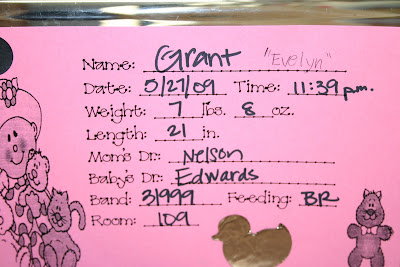 Name: Grant "Evelyn"
Date: 5/27/09 Time: 11:39 p.m.
Weight: 7 lbs. 8 oz.
Length: 21 in.
Mom's Dr: Nelson
Baby's Dr: Edwards
Band: 31999 Feeding: BR
Room: 109